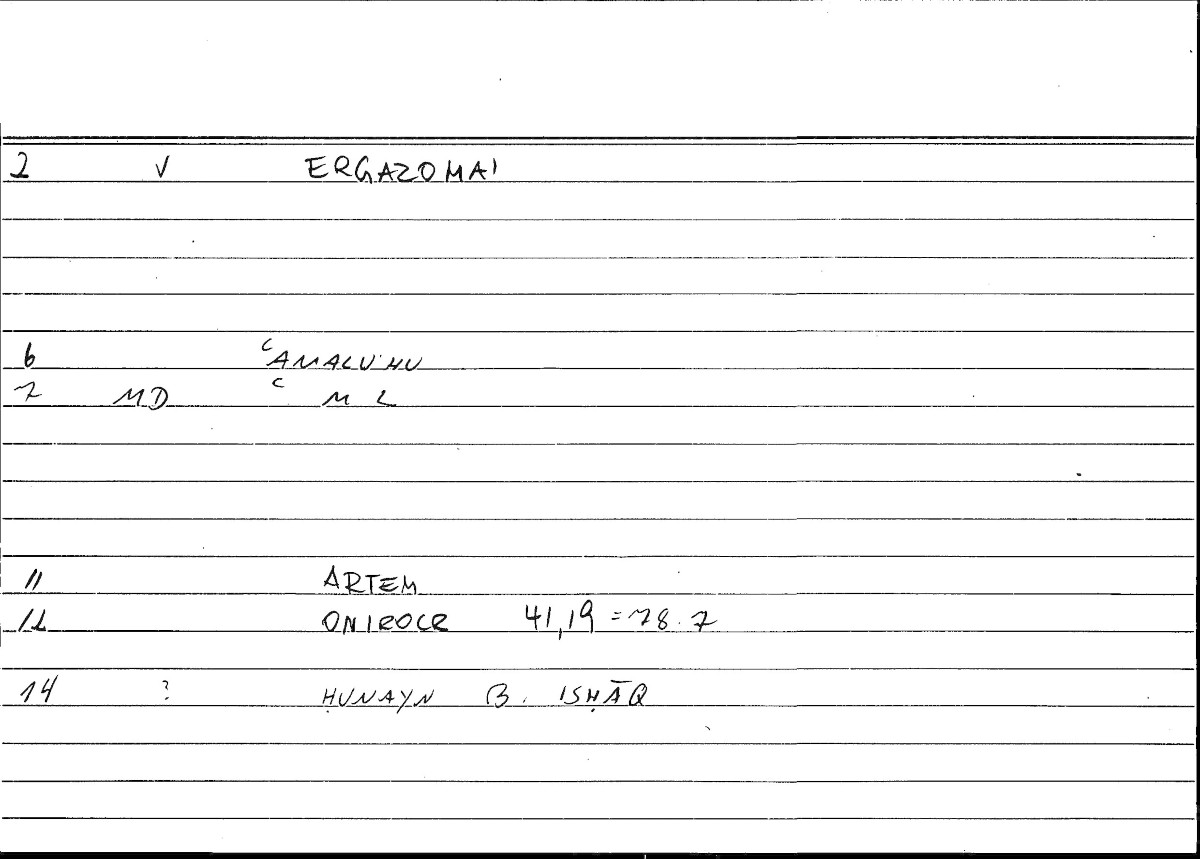 2 V ERGAZOMAI
6 ʿAMALUHU
7 MD ʿ M L
11 ARTEM
12 ONIROCR 41,19 = 78.7
14 ? ḤUNAYN B. ISḤĀQ